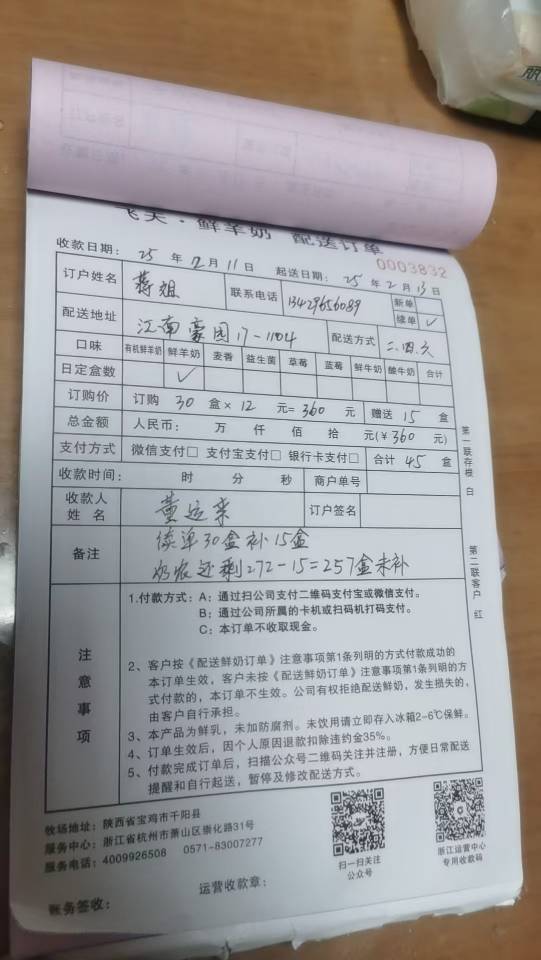 飞天·鲜羊奶 配送订单
0003832
收款日期: 25 年 2 月 11 日 起送日期: 25 年 2 月 13 日
订户姓名 蒋姐 联系电话 13429656089 新单
续单 ✓
配送地址 江南豪园17-1104 配送方式 二.四.六
口味 有机鲜羊奶 鲜羊奶 麦香 益生菌 草莓 蓝莓 鲜牛奶 酸牛奶 合计
日定盒数 ✓
订购价 订购 30 盒× 12 元= 360 元 赠送 15 盒
总金额 人民币: 万 仟 佰 拾 元(¥ 360 元)
支付方式 微信支付□ 支付宝支付□ 银行卡支付□ 合计 45 盒
收款时间: 时 分 秒 商户单号
收款人姓名 董运来 订户签名
备注 续单30盒补15盒
奶农还剩272-15=257盒未补
第一联存根 白
第二联客户 红
注意事项
1.付款方式: A: 通过扫公司支付二维码支付宝或微信支付。
B: 通过公司所属的卡机或扫码机打码支付。
C: 本订单不收取现金。
2、客户按《配送鲜奶订单》注意事项第1条列明的方式付款成功的
本订单生效，客户未按《配送鲜奶订单》注意事项第1条列明的方
式付款的，本订单不生效。公司有权拒绝配送鲜奶，发生损失的，
由客户自行承担。
3、本产品为鲜乳，未加防腐剂。未饮用请立即存入冰箱2-6℃保鲜。
4、订单生效后，因个人原因退款扣除违约金35%。
5、付款完成订单后，扫描公众号二维码关注并注册，方便日常配送
提醒和自行起送，暂停及修改配送方式。
牧场地址: 陕西省宝鸡市千阳县
服务中心: 浙江省杭州市萧山区崇化路31号
服务电话: 4009926508 0571-83007277
扫一扫关注
公众号
浙江运营中心
专用收款码
运营收款章:
账务签收: